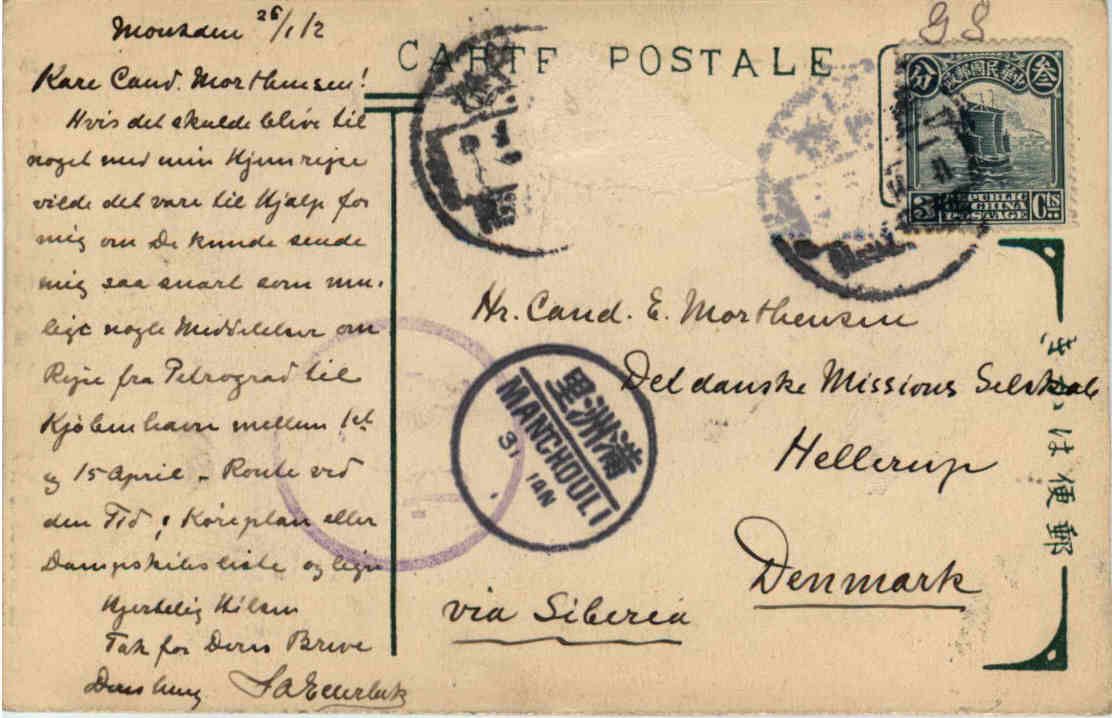 Moukden 26/1/2
Kære Cand. Morthensen!
Hvis det skulde blive til
noget med min Hjemrejse
vilde det være til Hjælp for
mig om De kunde sende
mig saa snart som mu-
ligt nogle Meddelelser om
Rejse fra Petrograd til
Kjøbenhavn mellem 1st
og 15 April - Route ved
den Tid, Køreplan eller
Dampskibsliste og lign
Hjertelig Hilsen
Tak for Deres Breve
Deres S A Ellerbek
CARTE POSTALE
G S
叁 中華民國郵政 分
3 REPUBLIC OF CHINA POSTAGE Cts
Hr. Cand. E. Morthensen
Det danske Missions Selskab
Hellerup
Denmark
via Siberia
滿洲里
MANCHOULI
31 IAN
郵便はかき